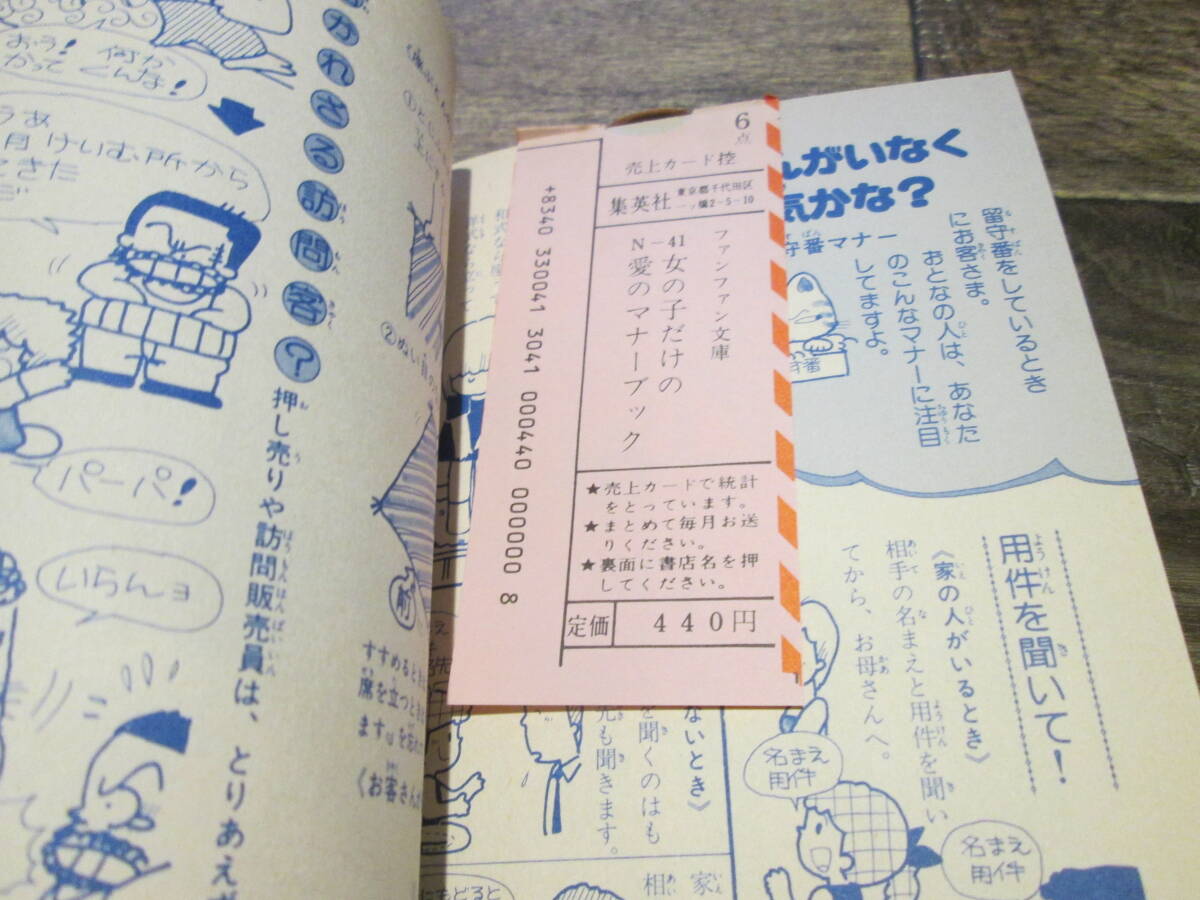 おう！何か
かって くんな！
月けいむ所から
できた
かれざる訪問客？
パーパ！
いらんヨ
押し売りや訪問販売員は、とりあえ
すすめるとき
席を立つとき
〈お客さんが
6点
売上カード控
集英社
東京都千代田区
一ツ橋2-5-10
ファンファン文庫
N-41 女の子だけの
愛のマナーブック
★売上カードで統計
をとっています。
★まとめて毎月お送
りください。
★裏面に書店名を押
してください。
定価 440円
+8340 330041 3041 000440 000000 8
んがいなく
気かな？
守番マナー
留守番をしているとき
にお客さま。
おとなの人は、あなた
のこんなマナーに注目
してますよ。
用件を聞いて！
《家の人がいるとき》
相手の名まえと用件を聞い
てから、お母さんへ。
名まえ
用件
名まえ
用件
ないとき》
を聞くのはも
先も聞きます。
家
相
にもどると